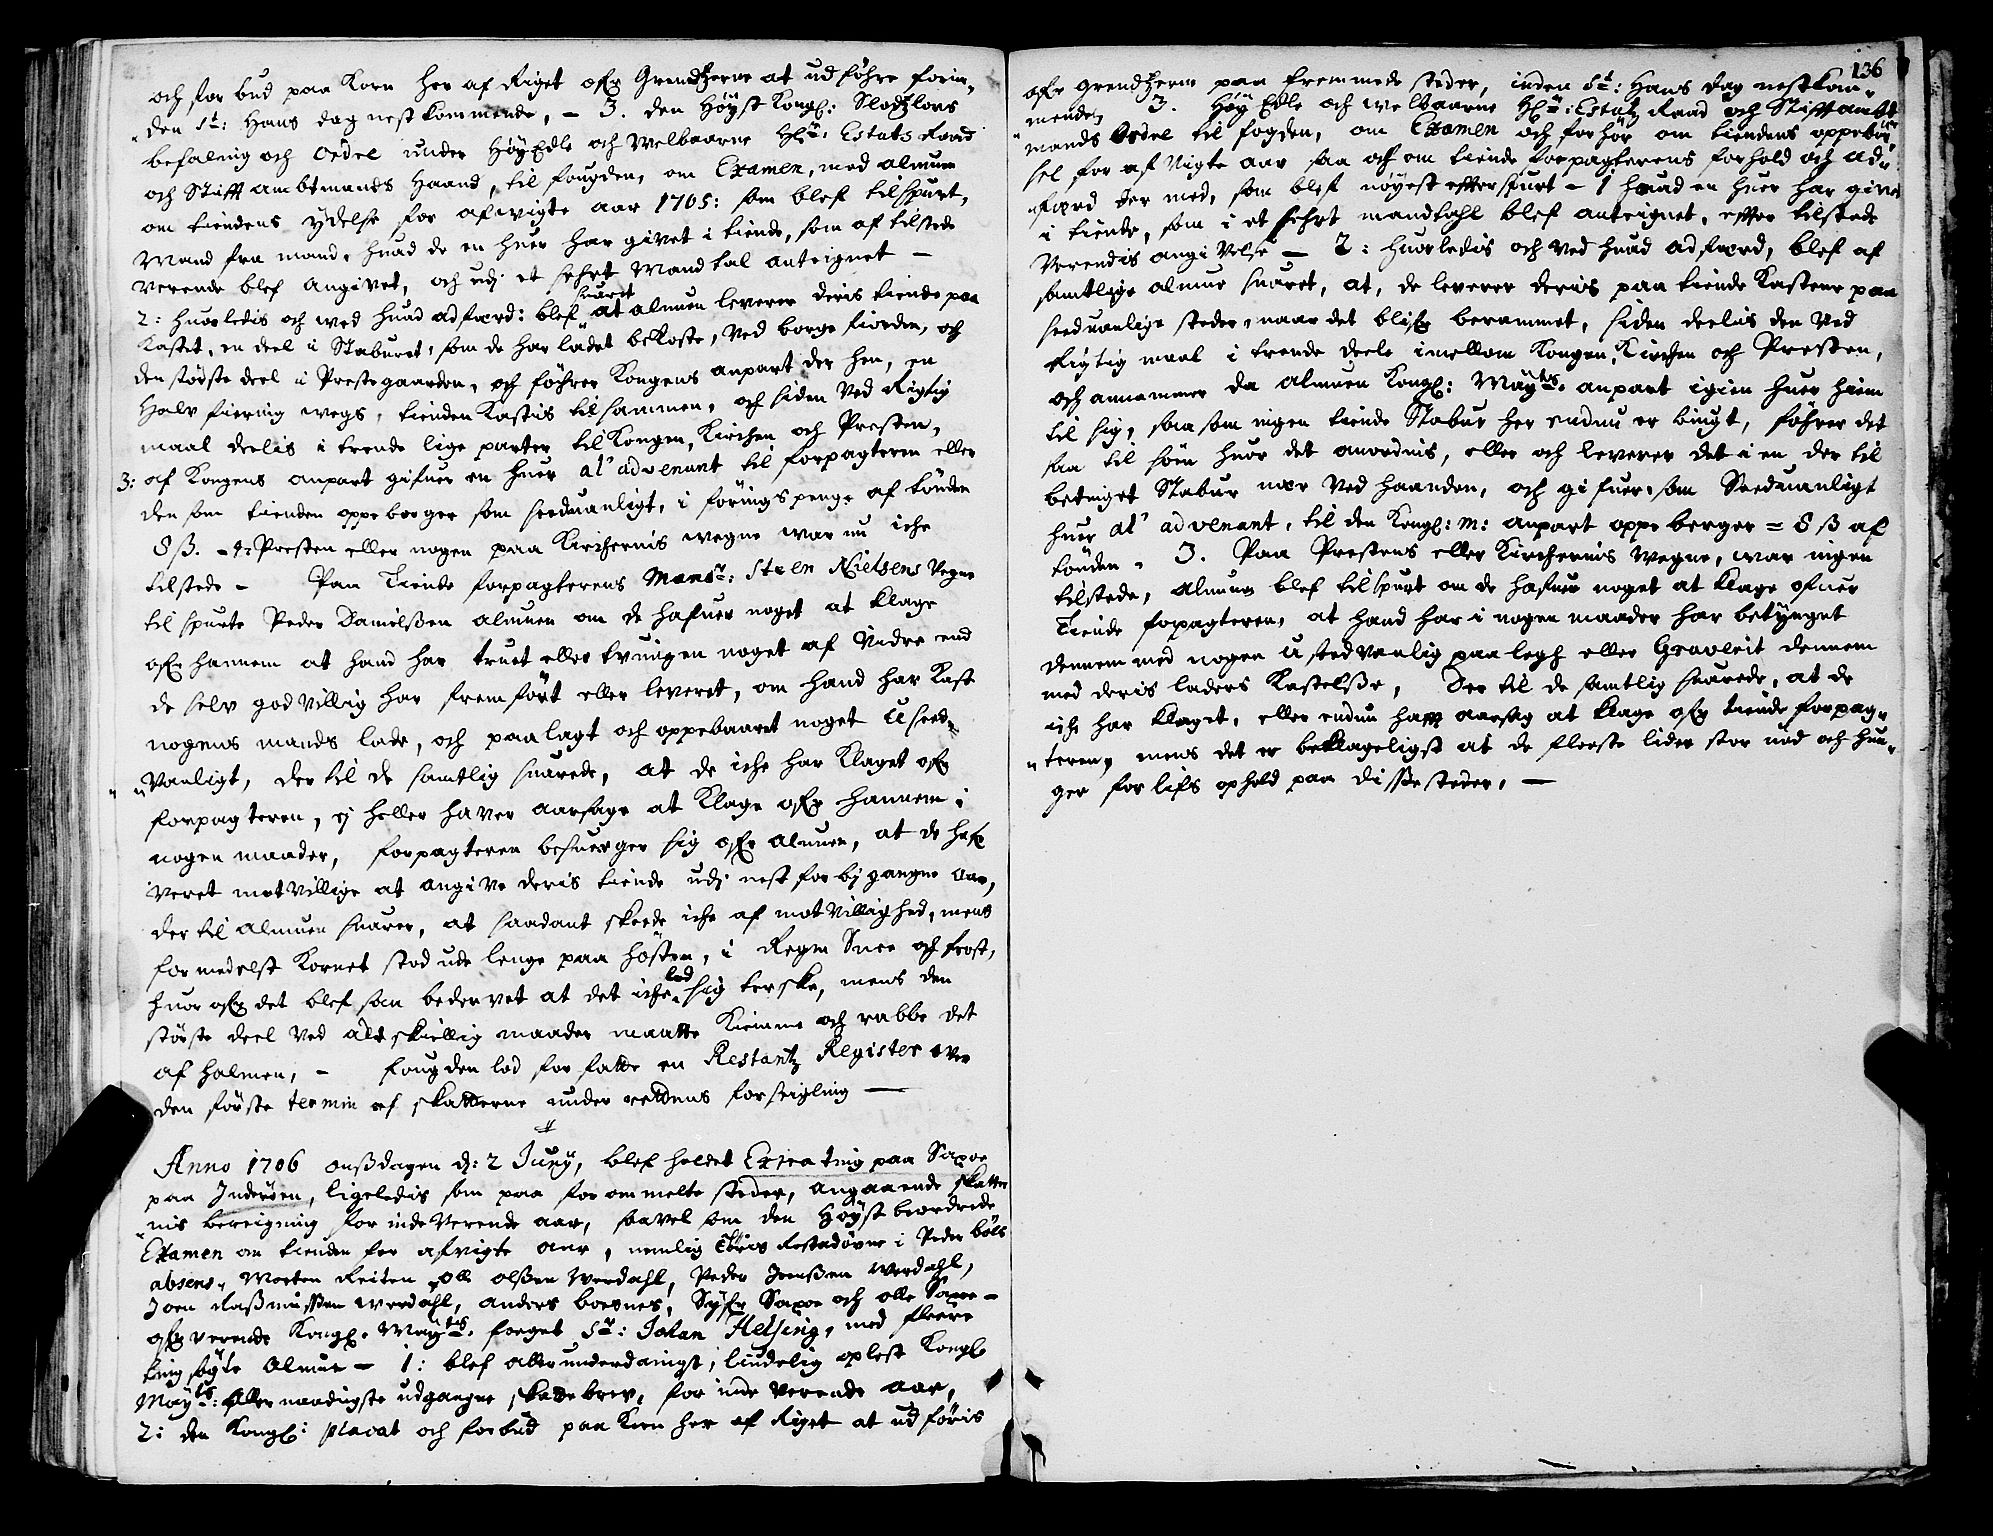 och forbud paa Korn her af Riget ofr Grendtzerne at udføhre forin-
den St: Hans dag nest kommende, - 3. den Høyst Kongl: Slodtzlovs
befaling och Ordre under HøyEdle och Welbaarne Hr: Estats Raad
och Stifft ambtmands Haand, til fougden, om Examen, med almuen
om tiendens ydelse for afvigte aar 1705: som blef tilspurt,
Mand fra mand, huad de en huer har givet i tiende, som af tilstede
verende blef angivet, och udj et sehrt Mandtal anteignet -
2: huorledis och wed huad adfærd: blef svaret at almuen leverer deris tiende paa
Kastet, en deel i Staburet, som de har ladet bekoste, ved borge fiorden, och
den største deel i Prestegaarden, och føhrer Kongens anpart der hen, en
Halv fierning wegs, tienden Kastis tilsammen, och siden ved Rigtig
maal deelis i trende lige parter til Kongen, Kirchen och Presten,
3: af Kongens anpart gifuer en huer al' advenant til forpagteren eller
den som tienden oppeberger som sedvanligt, i førings penge af tønden
8 ß. - 4: Presten eller nogen paa Kirchernis wegne war nu iche
tilstede - Paa Tiende forpagterens Monsr: Steen Nielsens Vegne
tilspurte Peder Danielßen almuen om de hafuer noget at klage
ofr hannem at hand har truet eller tvungen noget af Videre end
de selv godvillig har fremført eller leveret, om hand har Kast
nogens mands lade, och paalagt och oppebaaret noget U sed-
vanligt, der til de samtlig svarede, at de iche har Klaget ofr
forpagteren, ej heller haver aarsage at Klage ofr hannem i
nogen maader, forpagteren besuerger sig ofr almuen, at de hafr
veret motvillige at angive deris tiende udj nest forbj gangne Aar,
der til almuen svarer, at saadant skeede iche af motvillighed, mens
formedelst Kornet stod ude lenge paa høsten, i Regn Snee och frost,
huor ofr det blef saa bedervet at det iche lod sig terske, mens den
største deel ved alt skillig maader maatte Kiemme och rabbe det
af halmen, - fougden lod forfatte en Restantz Register over
den første termin af skatterne under rettens forseigling —
Anno 1706 onßdagen d: 2 Junÿ, blef holdet Extra ting paa Saxoe
paa Inderøen, ligeledis som paa forommelte steder, angaaende skatter
nis bereigning for indeverende aar, saavel som den Høyst beordrede
Examen om tienden for afvigte aar, nemlig Tøris Restadøvne i Peder bøls
absens, Morten Reiten Olle olßen Werdahl, Peder Jonßen werdahl,
Joen Raßmussen werdahl, anders boesnes, Syfr Saxoe och olle Saxoe -
ofrverende Kongl. Mayts. foeget Sr: Johan Helsing, med fleere
tingsøgte Almue - 1: blef allerunderdanigst, liudelig oplest Kongl
Mayts: Aller naadigste udgangne skattebrev, for indeverende aar,
2: den Kongl: placat och forbud paa Korn her af Riget at udføris
136
ofr grendtzerne paa fremmede steder, inden St: Hans dag nestkom-
mende, 3. Høy Edle och welbaarne Hr: Estatz Raad och Stifftambt
mands Ordre til fogden, om Examen och forhør om tiendens oppebør
sel for afvigte aar saa och om tiende forpagterens forhold och ad-
færd der med, som blef nøyest effterspurt - 1 huad en huer har givet
i tiende, som i et sehrt mandtahl blef anteignet, efter tilstede
verendis angivelse - 2: huorledis och ved huad adfærd, blef af
samtlige almue svaret, at, de leverer deris paa tiende Kastene paa
sedvanlige steder, naar det blifr berammet, siden deelis den ved
Rigtig maal i trende deele imellom Kongen, Kirchen och Presten,
och annammer da almuen Kongl: Mayts. anpart igien huer hiem
til sig, saa som ingen tiende Stabur her endnu er bügt, føhrer det
saa til søen huor det anordnis, eller och leverer det i en der til
betinget Stabur nær ved haanden, och gifuer, som Sedvanligt
huer al' advenant, til den Kongl: M: anpart oppeberger = 8 ß af
tønden. 3. Paa Prestens eller Kirchernis wegne, war ingen
tilstede, almuen blef tilspurt om de hafuer noget at klage ofuer
Tiende forpagteren, at hand har i nogen maader har betynget
dennem med nogen U sedvanlig paalegh eller Graverit dennem
med deris laders Kastelße, Der til de samtlig svarede, at de
iche har klaget, eller endnu hafr aarsag at klage ofr tiende forpag-
teren, mens det er beklageligst at de fleeste lider stor nød och hun-
ger for lifs ophold paa disße steder, —